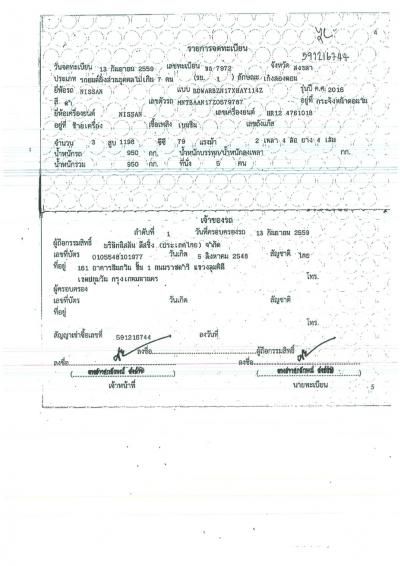 4
รายการจดทะเบียน
591216744
วันจดทะเบียน 13 กันยายน 2559 เลขทะเบียน 7972 จังหวัด สงขลา
ประเภท รถยนต์นั่งส่วนบุคคลไม่เกิน 7 คน (รย. 1 ) ลักษณะ เก๋งสองตอน
ยี่ห้อรถ NISSAN แบบ รุ่นปี ค.ศ. 2016
สี ดำ เลขตัวรถ อยู่ที่
ยี่ห้อเครื่องยนต์ NISSAN เลขเครื่องยนต์ HR12 476101B
อยู่ที่ เชื้อเพลิง เบนซิน เลขถังแก๊ส
จำนวน 3 สูบ 1198 ซีซี 79 แรงม้า 2 เพลา 4 ล้อ ยาง 4 เส้น
น้ำหนักรถ 950 กก. น้ำหนักบรรทุก/น้ำหนักลงเพลา กก.
น้ำหนักรวม 950 กก. ที่นั่ง 5 คน
เจ้าของรถ
ลำดับที่ 1 วันที่ครอบครองรถ 13 กันยายน 2559
ผู้ถือกรรมสิทธิ์ บริษัทนิสสัน ลีสซิ่ง (ประเทศไทย) จำกัด
เลขที่บัตร 0105548101977 วันเกิด 5 สิงหาคม 2548 สัญชาติ ไทย
ที่อยู่ 161 อาคาร ชั้น 1 ถนนราชดำริ แขวงลุมพินี
เขตปทุมวัน กรุงเทพมหานคร โทร.
ผู้ครอบครอง
เลขที่บัตร วันเกิด สัญชาติ
ที่อยู่
โทร.
สัญญาเช่าซื้อเลขที่ 591216744 ลงวันที่
ลงชื่อ ผู้ถือกรรมสิทธิ์
ลงชื่อ ลงชื่อ
เจ้าหน้าที่ นายทะเบียน
5